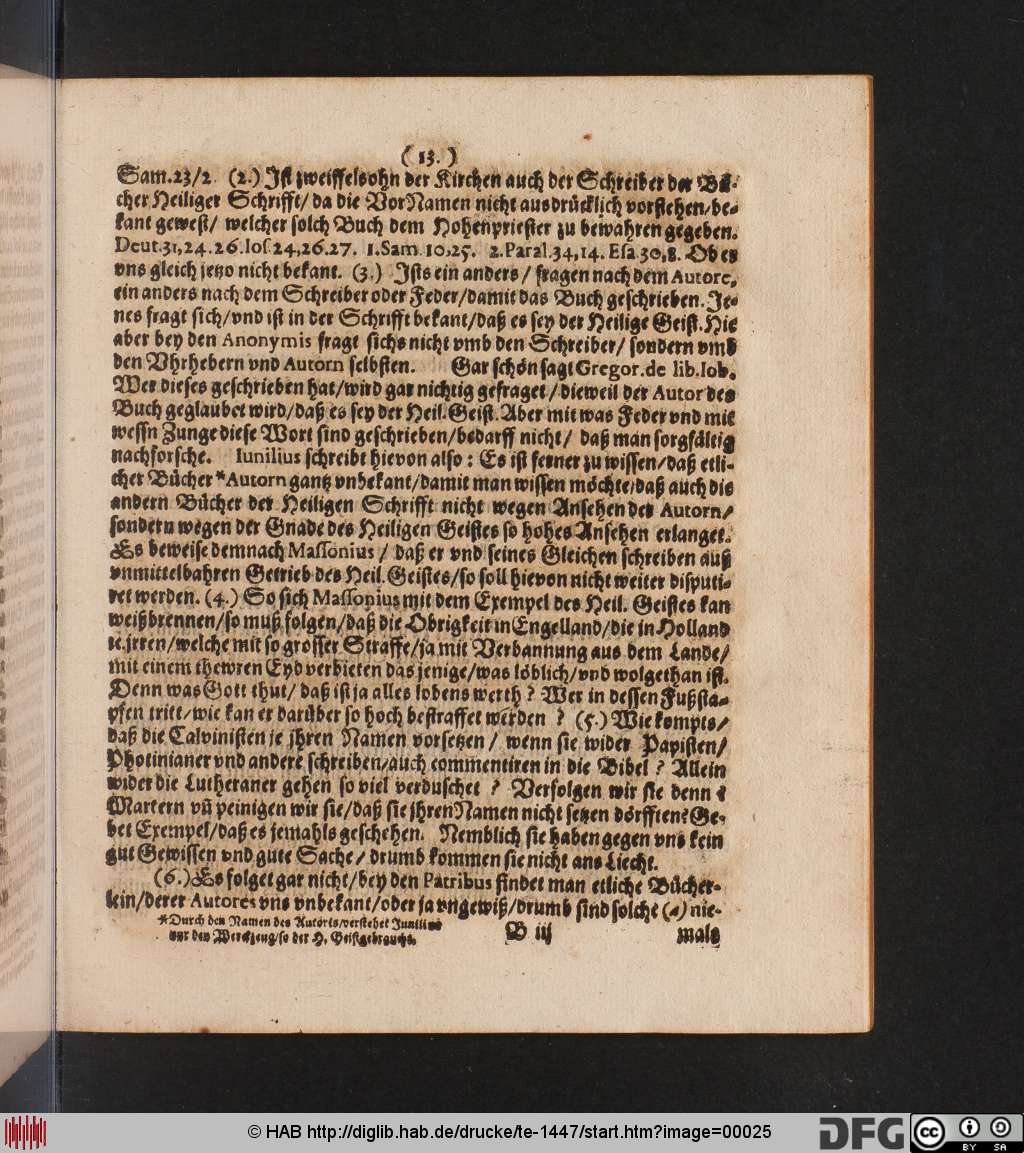 ( 13. )
Sam.23/2. (2.) Ist zweiffelsohn der Kirchen auch der Schreiber der Bü-
cher Heiliger Schrifft/ da die VorNamen nicht ausdrücklich vorstehen/be-
kant gewest/ welcher solch Buch dem Hohenpriester zu bewahren gegeben.
Deut.31,24.26.Ios.24,26.27. 1.Sam.10,25. 2.Paral.34,14. Esa.30,8. Ob es
vns gleich jetzo nicht bekant. (3.) Ists ein anders / fragen nach dem Autore,
ein anders nach dem Schreiber oder Feder/damit das Buch geschrieben. Je-
nes fragt sich/vnd ist in der Schrifft bekant/daß es sey der Heilige Geist. Hie
aber bey den Anonymis fragt sichs nicht vmb den Schreiber/ sondern vmb
den Vhrhebern vnd Autorn selbsten. Gar schön sagt Gregor.de lib.Iob.
Wer dieses geschrieben hat/wird gar nichtig gefraget/dieweil der Autor des
Buch geglaubet wird/daß es sey der Heil.Geist. Aber mit was Feder vnd mit
wessn Zunge diese Wort sind geschrieben/bedarff nicht/ daß man sorgfältig
nachforsche. Iunilius schreibt hievon also : Es ist ferner zu wissen/daß etli-
cher Bücher *Autorn gantz vnbekant/damit man wissen möchte/daß auch die
andern Bücher der Heiligen Schrifft nicht wegen Ansehen der Autorn/
sondern wegen der Gnade des Heiligen Geistes so hohes Ansehen erlanget.
Es beweise demnach Massonius / daß er vnd seines Gleichen schreiben auß
vnmittelbahren Getrieb des Heil.Geistes/so soll hievon nicht weiter disputi-
ret werden. (4.) So sich Massonius mit dem Exempel des Heil. Geistes kan
weißbrennen/so muß folgen/daß die Obrigkeit in Engelland/die in Holland
ic.jrren/welche mit so grosser Straffe/ja mit Verbannung aus dem Lande/
mit einem thewren Eyd verbieten das jenige/was löblich/vnd wolgethan ist.
Denn was Gott thut/ daß ist ja alles lobens werth ? Wer in dessen Fußsta-
pfen tritt/wie kan er darüber so hoch bestraffet werden ? (5.) Wie kompts/
daß die Calvinisten je jhren Namen vorsetzen / wenn sie wider Papisten/
Photinianer vnd andere schreiben/auch commentiren in die Bibel ? Allein
wider die Lutheraner gehen so viel verduschet ? Verfolgen wir sie denn ?
Martern vñ peinigen wir sie/daß sie jhren Namen nicht setzen dörfften? Ge-
bet Exempel/daß es jemahls geschehen. Nemblich sie haben gegen vns kein
gut Gewissen vnd gute Sache/ drumb kommen sie nicht ans Liecht.
(6.) Es folget gar nicht/bey den Patribus findet man etliche Bücher-
lein/derer Autores vns vnbekant/oder ja vngewiß/drumb sind solche (a) nie-
*Durch den Namen des Autoris/verstehet Junilius
nur den Werckzeug/so der H. Geist gebraucht.
B iij
mals
© HAB http://diglib.hab.de/drucke/te-1447/start.htm?image=00025
DFG
cc
BY SA